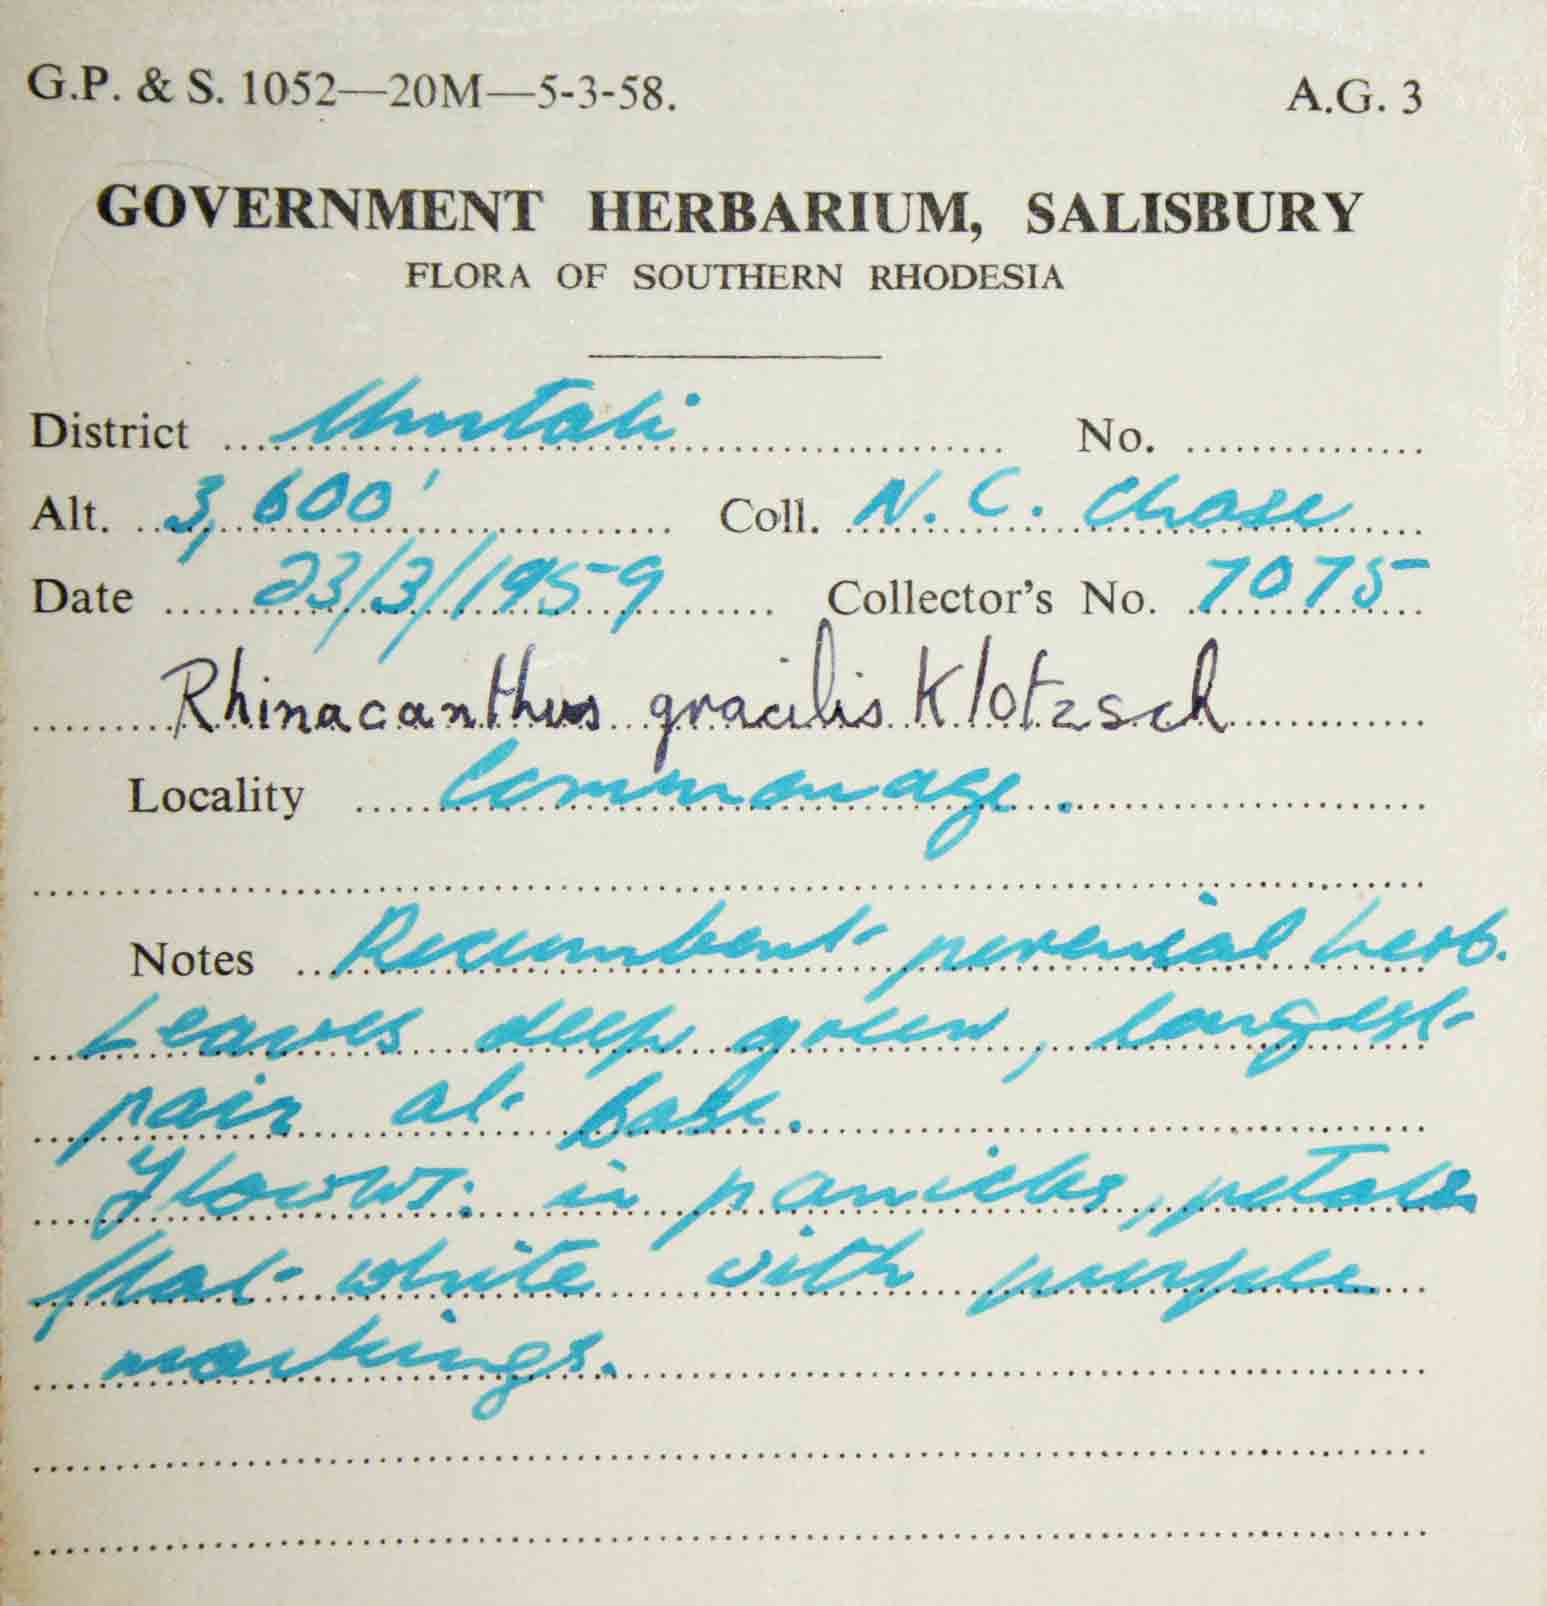 G.P. & S. 1052—20M—5-3-58. A.G. 3
GOVERNMENT HERBARIUM, SALISBURY
FLORA OF SOUTHERN RHODESIA
District Umtali No.
Alt. 3,600' Coll. N. C. Chase
Date 23/3/1959 Collector's No. 7075
Rhinacanthus gracilis Klotzsch
Locality Commonage.
Notes Recumbent perenial herb.
Leaves deep green, longest
pair at base.
Flowers: in panicles, petals
flat white with purple
markings.